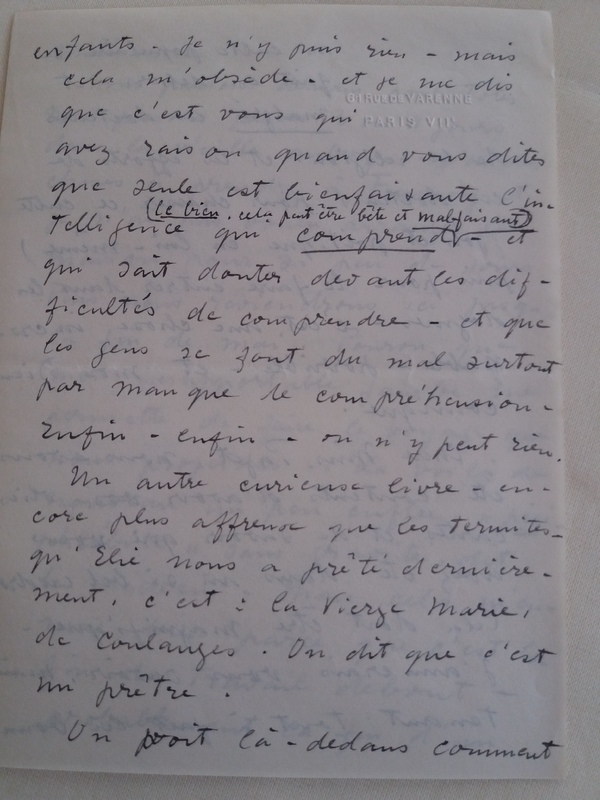 enfants. Je n'y puis rien - mais
cela m'obsède - et je me dis
61 RUE DE VARENNE
que c'est vous qui
PARIS VIIe
avez raison quand vous dites
que seule est bienfaisante l'in-
(Le bien, cela peut être bête et malfaisant)
telligence qui comprend - et
qui sait douter devant les dif-
ficultés de comprendre - et que
les gens se font du mal surtout
par manque de compréhension -
Enfin - enfin - on n'y peut rien.
Un autre curieuse livre - en-
core plus affreuse que les termites -
qu'Elie nous a prêté dernière-
ment, c'est : la Vierge Marie,
de Coulanges. On dit que c'est
un prêtre.
On voit là-dedans comment